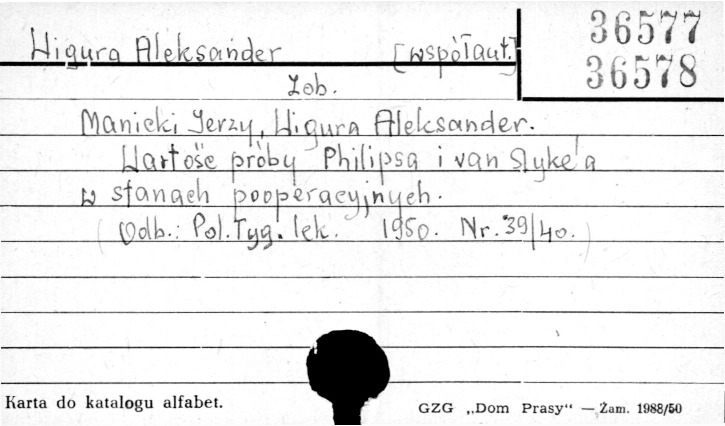 Wigura Aleksander [współaut.]
36577
36578
Zob.
Manicki Jerzy, Wigura Aleksander.
Wartość próby Philipsa i van Slyke'a
w stanach pooperacyjnych.
(Odb.: Pol. Tyg. lek. 1950. Nr. 39/40.)
Karta do katalogu alfabet.
GZG „Dom Prasy“ — Zam. 1988/50